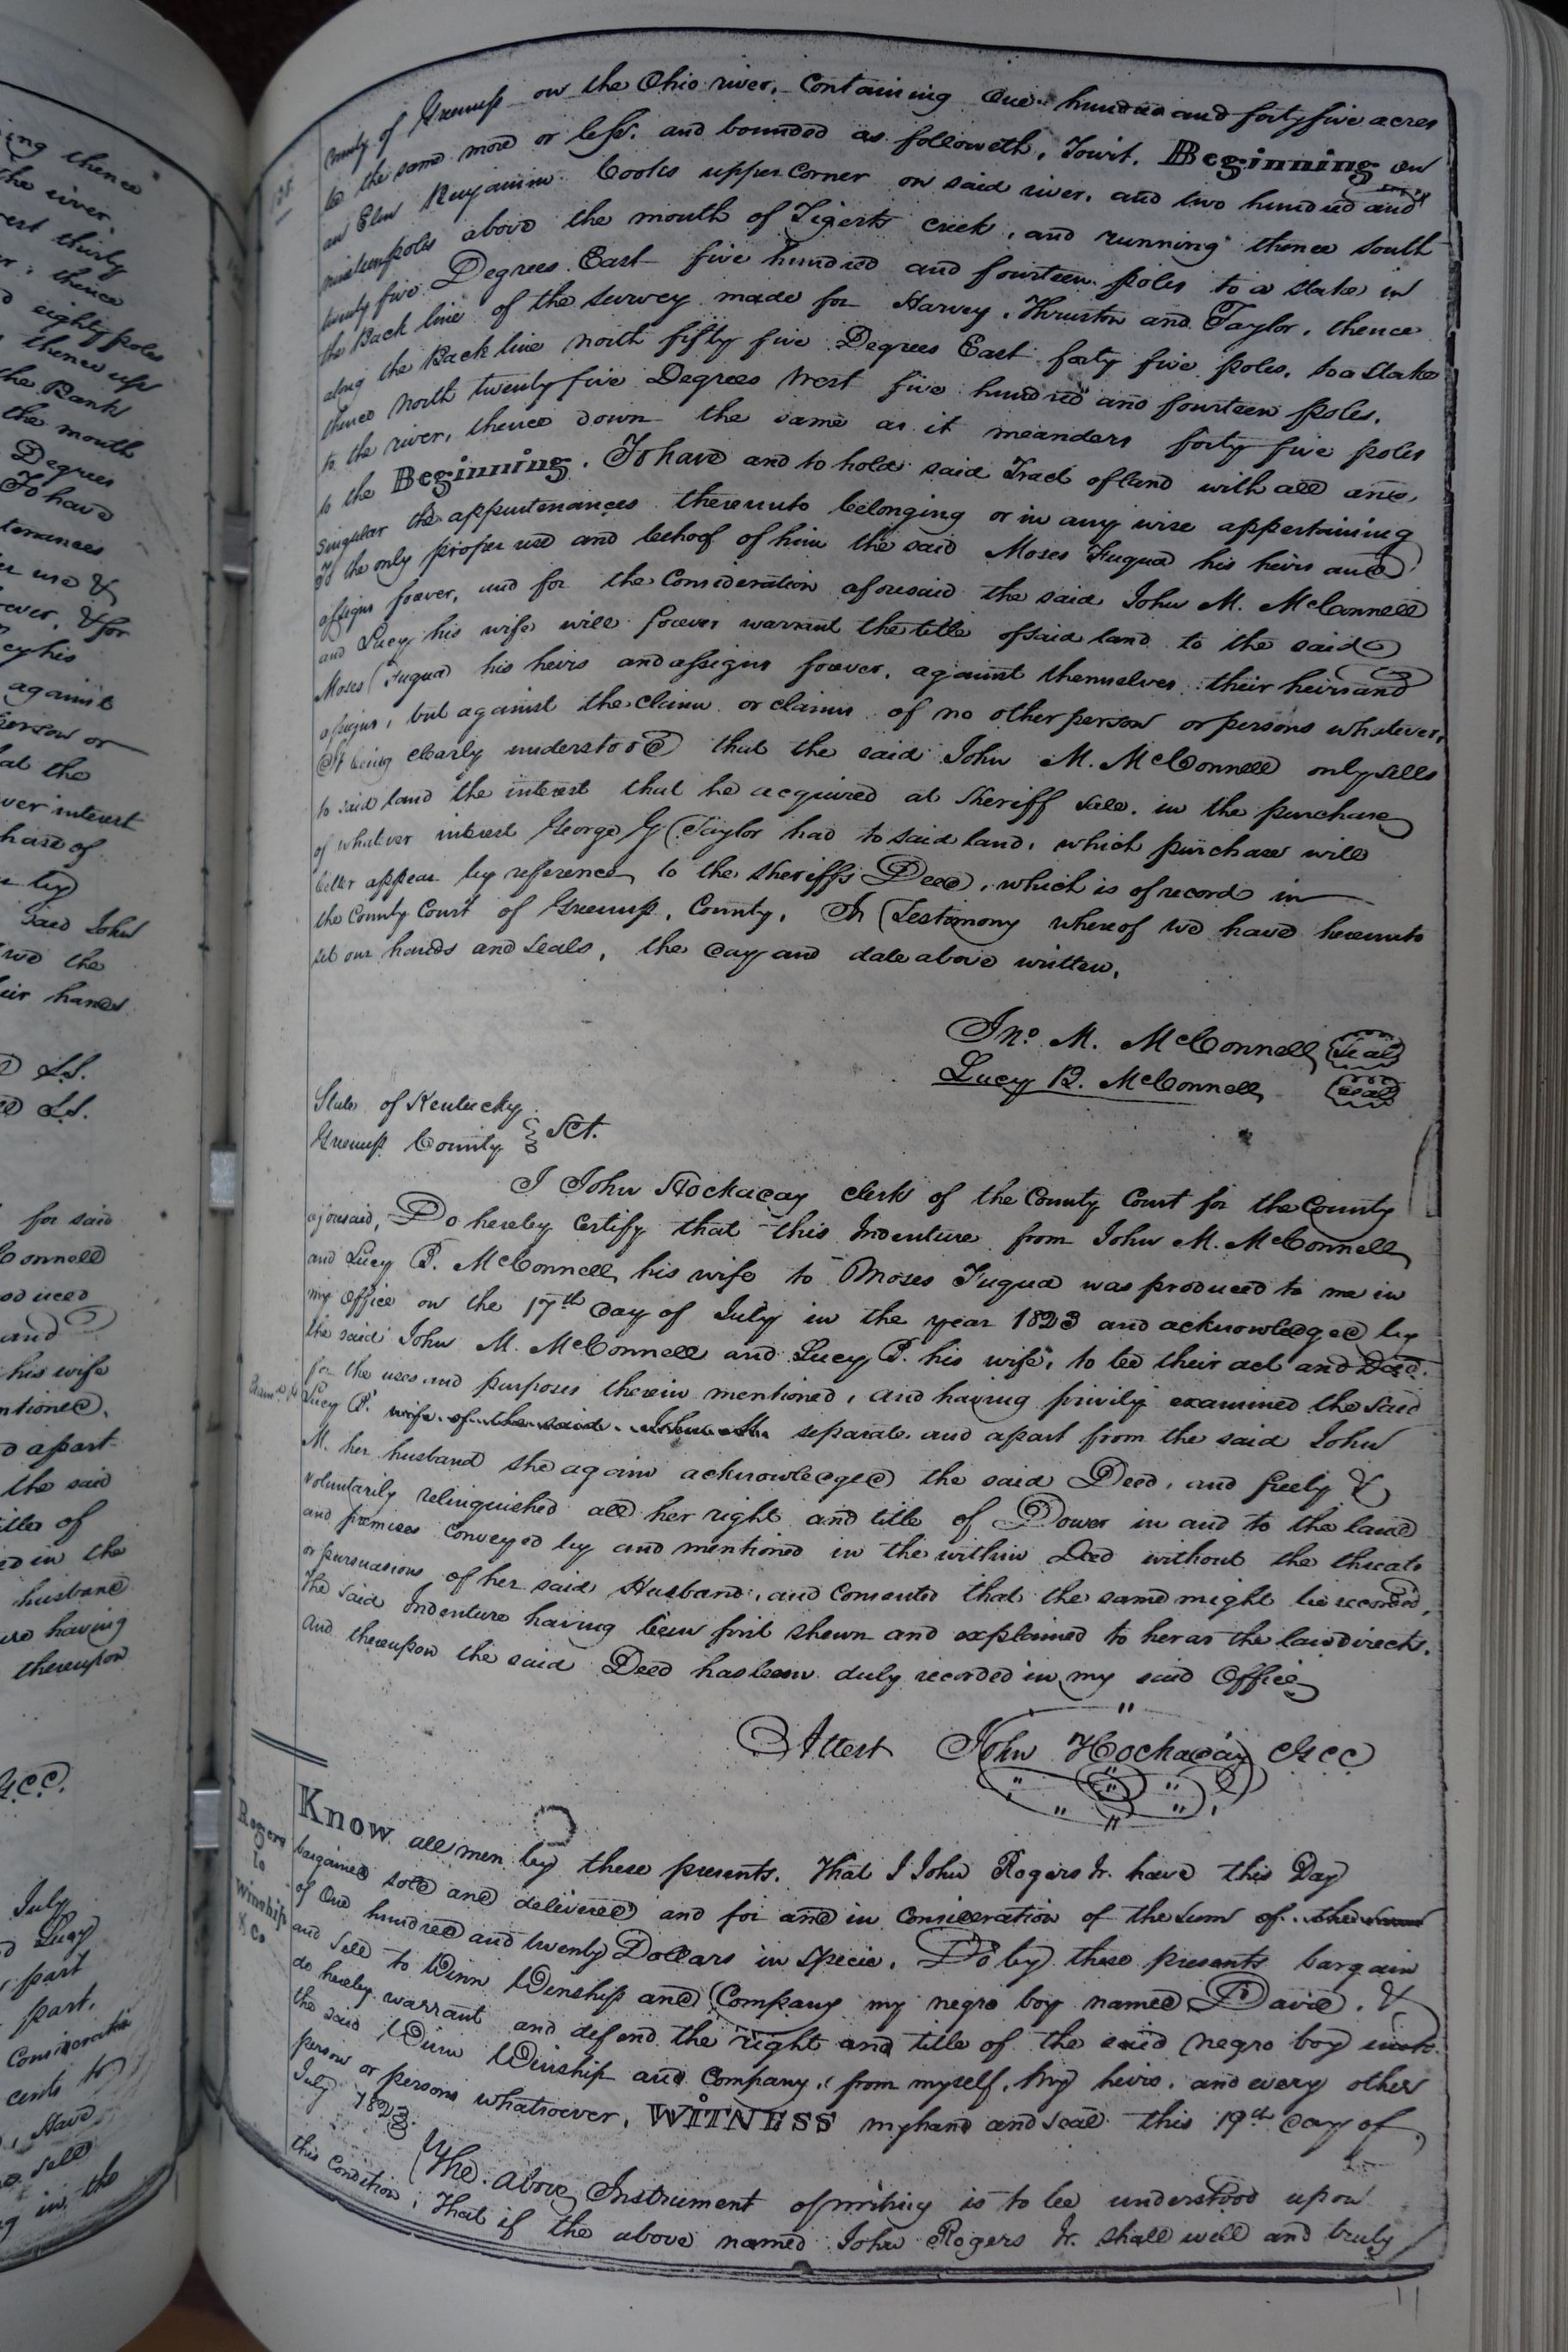 ing thence
the river,
rest thirty
thence
eighty poles
thence up
the Bank
the mouth
Degrees
To have
tenances
use &
ever, & for
cy his
against
person or
at the
ver interest
chase of
by
said John
we the
eir hands
L.S.
L.S.
for said
Connell
oduced
and
his wife
ntioned.
d apart
the said
itle of
ed in the
husband
having
thereupon
G.C.C.
July
Lucy
part
part,
Consideratio
cents to
have
sell
in the
County of Greenup on the Ohio river, Containing One hundred and forty five acres
be the same more or less, and bounded as followeth, Towit, Beginning on
an Elm Benjamin Cooks upper Corner on said river, and two hundred and
nineteen poles above the mouth of Tigerts creek, and running thence South
twenty five Degrees East five hundred and fourteen poles to a stake in
the Back line of the survey made for Harvey, Thruston and Taylor, thence
along the Back line north fifty five Degrees East forty five poles, to a stake
thence North twenty five Degrees West five hundred and fourteen poles,
to the river, thence down the same as it meanders forty five poles
to the Beginning. To have and to hold said Tract of land with all and
singular the appurtenances thereunto belonging or in any wise appertaining
To the only proper use and behoof of him the said Moses Fuqua his heirs and
assigns forever, and for the Consideration aforesaid the said John M. McConnell
and Lucy his wife will forever warrant the title of said land to the said
Moses Fuqua his heirs and assigns forever, against themselves their heirs and
assigns, but against the claim or claims of no other person or persons whatever,
It being clearly understood that the said John M. McConnell only sells
to said land the interest that he acquired at Sheriff sale, in the purchase
of whatever interest George G Taylor had to said land, which purchase will
better appear by reference to the Sheriffs Deed, which is of record in
the County Court of Greenup, County, In Testimony whereof we have hereunto
set our hands and seals, the day and date above written,
Jno. M. McConnell Seal
Lucy B. McConnell Seal
State of Kentucky
Greenup County Sct.
I John Hockaday clerk of the County Court for the County
aforesaid, Do hereby Certify that this Indenture from John M. McConnell
and Lucy B. McConnell his wife to Moses Fuqua was produced to me in
my office on the 17th day of July in the year 1823 and acknowledged by
the said John M. McConnell and Lucy B. his wife, to be their act and Deed
for the uses and purposes therein mentioned, and having privily examined the said
Lucy B. wife of the said John M. separate and apart from the said John
M. her husband she again acknowledged the said Deed, and freely &
voluntarily relinquished all her right and title of Dower in and to the land
and premises Conveyed by and mentioned in the within Deed without the threats
or persuasions of her said Husband, and Consented that the same might be recorded,
The said Indenture having been first shewn and explained to her as the law directs,
and thereupon the said Deed has been duly recorded in my said Office
Attest John Hockaday GCC
Rogers
to
Winship
& Co
Know all men by these presents, That I John Rogers Jr. have this Day
bargained sold and delivered and for and in Consideration of the sum of the sum
of One hundred and twenty Dollars in specie, Do by these presents bargain
and sell to Winn Winship and Company my negro boy named David, &
do hereby warrant and defend the right and title of the said negro boy unto
the said Winn Winship and Company, from myself, my heirs, and every other
person or persons whatsoever, WITNESS my hand and seal this 19th day of
July 1823.
The above Instrument of writing is to be understood upon
this Condition, That if the above named John Rogers Jr. shall well and truly